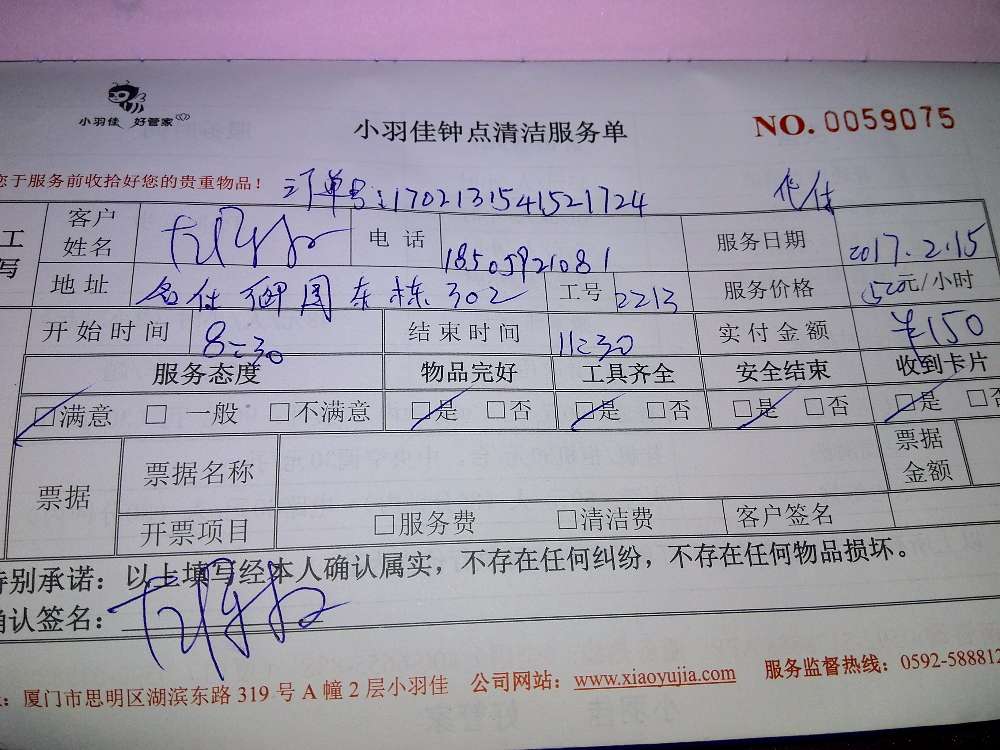 小羽佳 好管家
小羽佳钟点清洁服务单
NO. 0059075
您于服务前收拾好您的贵重物品！
订单号:1702131541521724
工
写
客户姓名 电话 18505921081 服务日期 2017.2.15
地址 名仕御园东栋302 工号 2213 服务价格 50元/小时
开始时间 8:30 结束时间 11:30 实付金额 ¥150
服务态度 物品完好 工具齐全 安全结束 收到卡片
□满意 □一般 □不满意 □是 □否 □是 □否 □是 □否 □是 □否
票据 票据名称 票据金额
开票项目 □服务费 □清洁费 客户签名
特别承诺：以上填写经本人确认属实，不存在任何纠纷，不存在任何物品损坏。
确认签名：
厦门市思明区湖滨东路 319 号 A 幢 2 层小羽佳 公司网站：www.xiaoyujia.com 服务监督热线：0592-588812